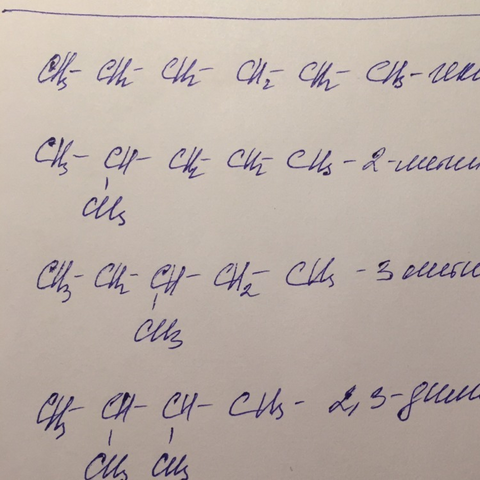 CH₃- CH₂- CH₂- CH₂- CH₂- CH₃- гек
CH₃- CH- CH₂- CH₂- CH₃- 2-мети
CH₃
CH₃- CH₂- CH- CH₂- CH₃ - 3 мети
CH₃
CH₃- CH- CH- CH₃- 2,3-диме
CH₃ CH₃